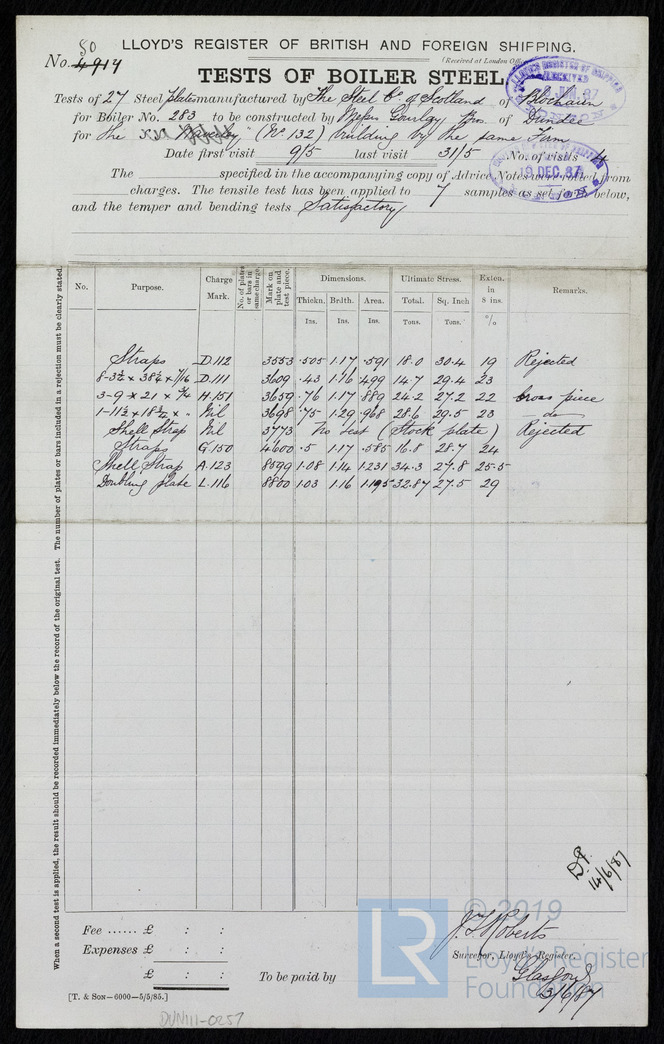 80
LLOYD'S REGISTER OF BRITISH AND FOREIGN SHIPPING.
No. 4914
(Received at London Off
TESTS OF BOILER STEEL
Tests of 27 Steel plates manufactured by The Steel Co of Scotland of Blochairn
for Boiler No. 283 to be constructed by Messrs Gourlay Bros. of Dundee
for the (No. 132) building by the same Firm
Date first visit 9/5 last visit 31/5 No. of visits 4
19 DEC. 87
The specified in the accompanying copy of Advice Notes were rolled from
charges. The tensile test has been applied to 7 samples as set forth below,
and the temper and bending tests Satisfactory
No. Purpose. Charge Mark. No. of plates or bars in same charge. Mark on plate and test piece. Dimensions. Ultimate Stress. Exten. in 8 ins. Remarks.
Thickn. Brdth. Area. Total. Sq. Inch
Ins. Ins. Ins. Tons. Tons. %
Straps D.112 3553 .505 1.17 .591 18.0 30.4 19 Rejected
8-3½ × 38¼ × 7/16 D.111 3609 .43 1.16 .499 14.7 29.4 23
3-9 × 21 × ¾ H.151 3659 .76 1.17 .889 24.2 27.2 22 Cross piece
1-11½ × 18¾ × " Nil 3698 .75 1.29 .968 28.6 29.5 23 do
Shell Strap Nil 3773 No test (Stock plate) Rejected
Straps G.150 4600 .5 1.17 .585 16.8 28.7 24
Shell Strap A.123 8599 1.08 1.14 1.231 34.3 27.8 25.5
Doubling plate L.116 8800 1.03 1.16 1.195 32.87 27.5 29
When a second test is applied, the result should be recorded immediately below the record of the original test. The number of plates or bars included in a rejection must be clearly stated.
14/6/87
Fee ...... £ : :
Expenses £ : :
£ : :
To be paid by
J. T. Roberts
Surveyor, Lloyd's Register.
Glasgow
3/6/87
[T. & SON—6000—5/5/85.]
DUN111-0257
LR
© 2019
Lloyd's Register
Foundation